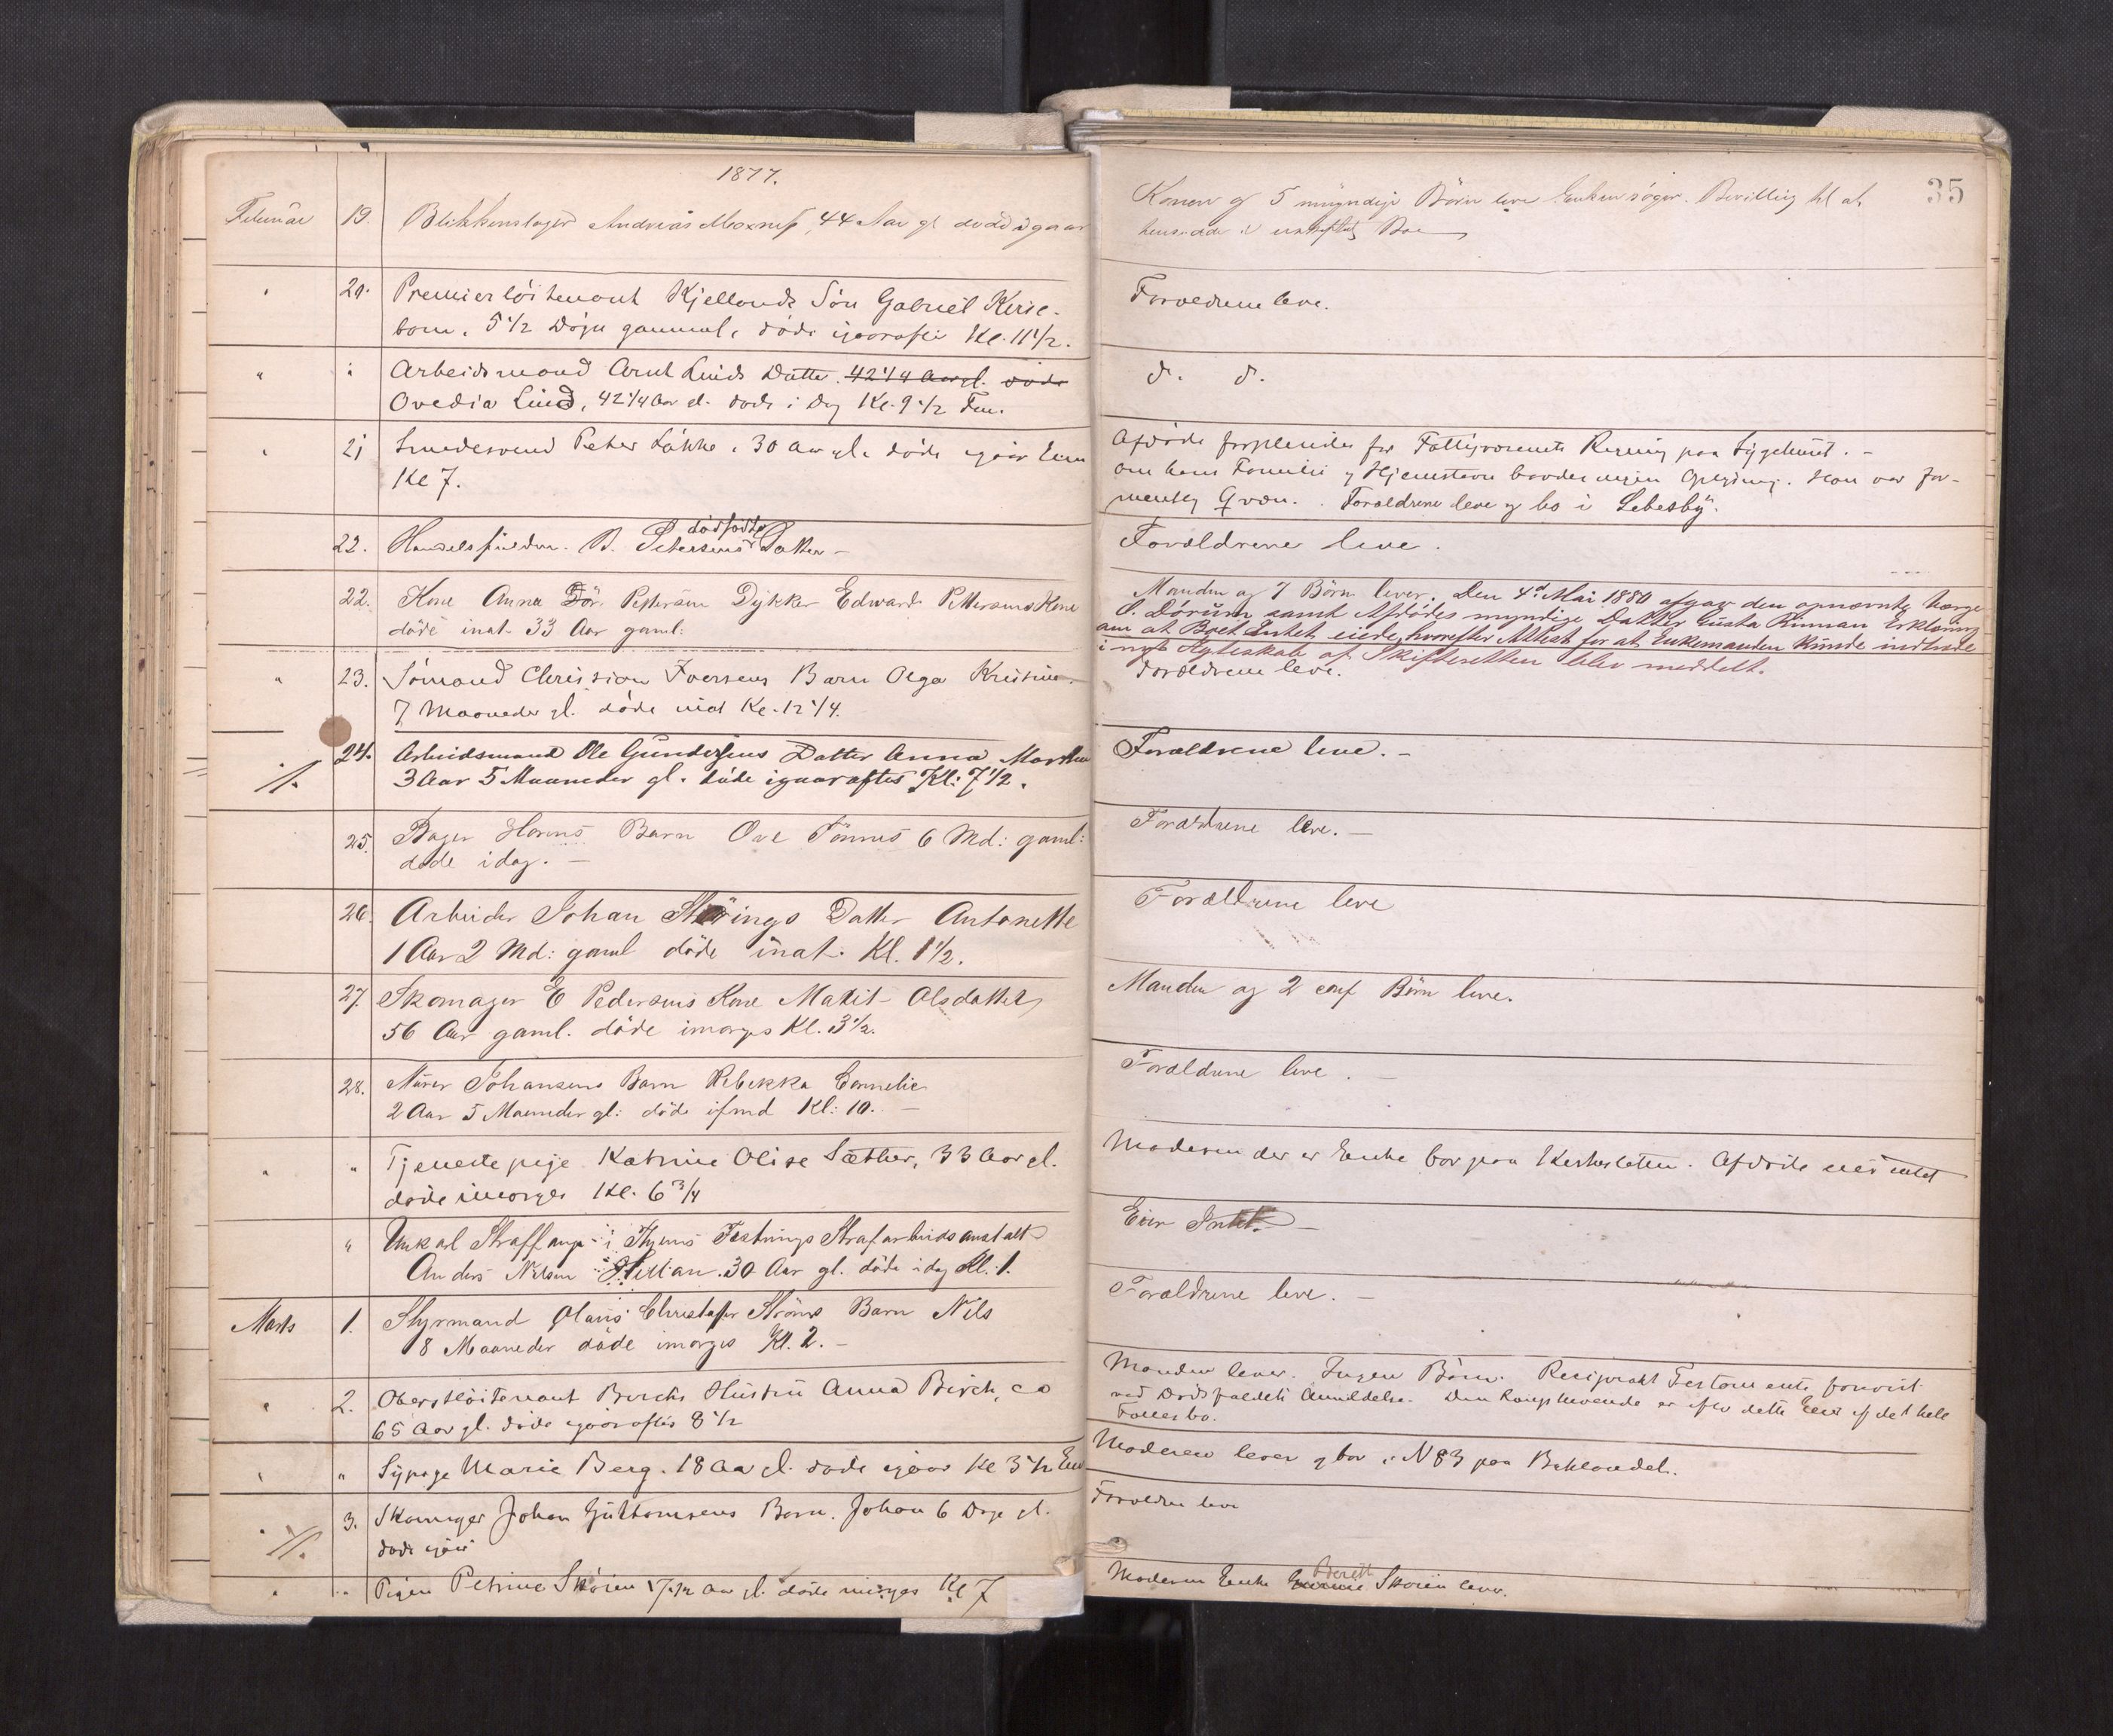 1877.
35
Februar 19. Blikkenslager Andreas Moxness, 44 Aar gl døde igaar
Konen og 5 umyndige Børn leve Enken søger Bevilling til at
hensidde i uskiftet Bo
" 20. Premierløitenant Kjellands Søn Gabriel Kirse-
bom, 5 1/2 Døgn gammel, døde igaaraftes Kl. 11 1/2.
Forældrene leve.
" " Arbeidsmand Arnt Linds Datter. 42 1/4 Aar gl. døde
Ovedia Lind, 42 1/4 Aar gl. døde i Dag Kl. 9 1/2 Fm.
d. d.
" 21 Smedesvend Peter Løkke, 30 Aar gl. døde igaar Em
Kl 7.
Afdøde forpleiedes for Fattigvæsenets Regning paa Sygehuset. -
Om hans Familie og Hjemstavn havdes ingen Oplysning. Han var for-
mentlig Qvæn. Forældrene leve og bo i Lebesby.
22. Handelsfuldm. B. Petersens dødfødte Datter -
Forældrene leve.
22. Kone Anna Dor. Pettersen Dykker Edward Pettersens Kone
døde inat 33 Aar gaml:
Manden og 7 Børn lever. Den 4de Mai 1880 afgav den opnævnte Værge
O. Dørum samt Afdødes myndige Datter Gusta Rinnan Erklæring
om at Boet Intet eiede, hvorefter Attest for at Enkemanden kunde indtræde
i nyt Ægteskab af Skifteretten blev meddelt.
" 23. Sømand Christian Iversens Barn Olga Kristine
7 Maaneder gl. døde inat Kl. 12 1/4.
Forældrene leve.
24. Arbeidsmand Ole Gundersens Datter Anna Marthea
3 Aar 5 Maaneder gl. døde igaaraftes Kl: 7 1/2.
Forældrene leve. -
25. Bager Horns Barn Ove Tønnes 6 Md: gaml:
døde idag. -
Forældrene leve. -
26. Arbeider Johan Størings Datter Antonette
1 Aar 2 Md: gaml døde inat. Kl. 1 1/2.
Forældrene leve
27. Skomager E Pedersens Kone Marit Olsdatter
56 Aar gaml. døde imorges Kl. 3 1/2.
Manden og 2 conf Børn leve.
28. Murer Johansens Barn Rebekka Cornelie
2 Aar 5 Maaneder gl: døde ifmd Kl: 10. -
Forældrene leve. -
" " Tjenestepige Katrine Olise Sæther, 33 Aar gl.
døde imorges Kl. 6 3/4
Moderen der er Enke bor paa Ihlesletten. Afdøde eied intet
" Unkarl Straffange i Thjems Fæstnings Strafarbeidsanstalt
Anders Nilsen 30 Aar gl. døde idag Kl. 1.
Eier Intet. -
Marts 1. Styrmand Olaus Christofer Strøms Barn Nils
8 Maaneder døde imorges Kl. 2. -
Forældrene leve. -
" 2. Oberstløitenant Birchs Hustru Anna Birch, ca
65 Aar gl. døde igaaraftes 8 1/2
Manden lever. Ingen Børn. Reciprokt Testamente forevist
ved Dødsfaldets Anmeldelse. Den Længstlevende er efter dette Eier af det hele
Fællesbo.
" " Sypige Marie Berg. 18 Aar gl. døde igaar Kl 3 1/2 Em
Moderen lever og bor i N 83 paa Baklandet.
" 3. Skomager Johan Guttormsens Barn. Johan 6 Dage gl.
døde igaar
Forældre leve
" " Pigen Petrine Skøien 17 1/2 Aar gl. døde imorges Kl 7
Moderen Enke Berett Skøien lever.